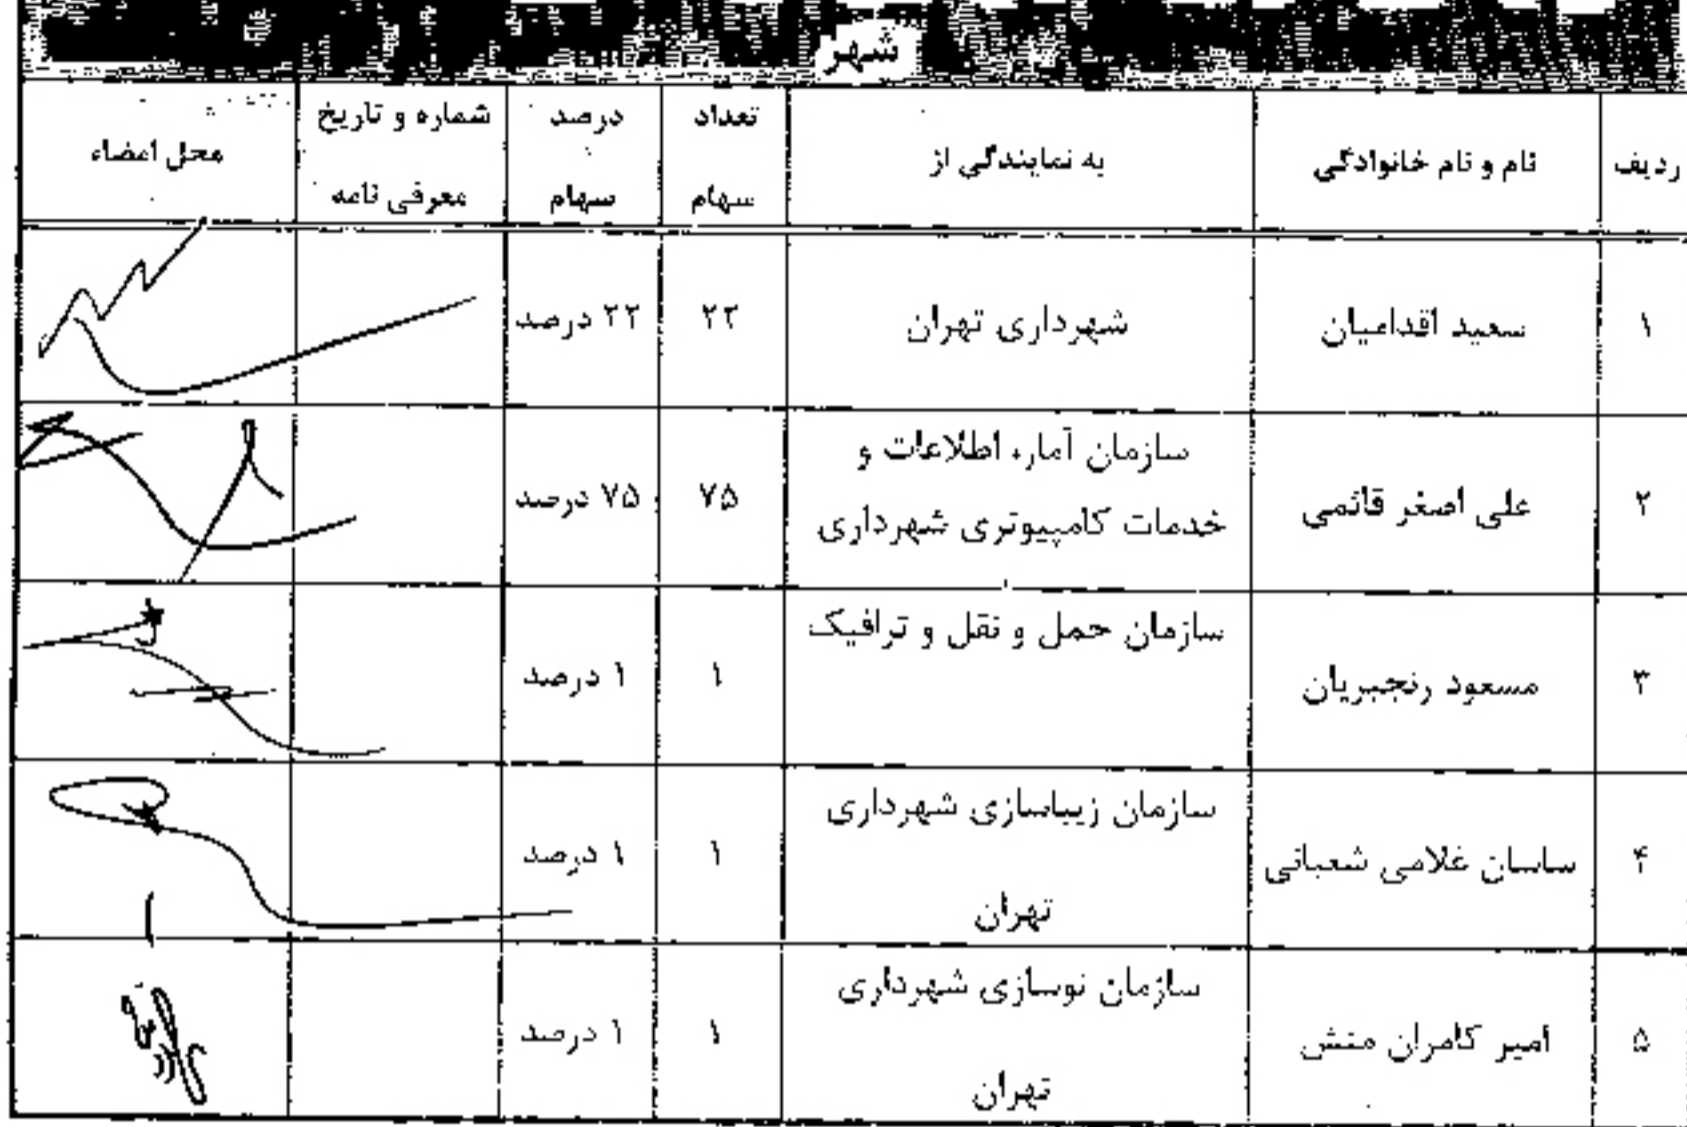 شهر
ردیف نام و نام خانوادگی به نمایندگی از تعداد سهام درصد سهام شماره و تاریخ معرفی نامه محل امضاء
۱ سعید اقدامیان شهرداری تهران ۲۲ ۲۲ درصد
۲ علی اصغر قائمی سازمان آمار، اطلاعات و
خدمات کامپیوتری شهرداری ۷۵ ۷۵ درصد
۳ مسعود رنجبریان سازمان حمل و نقل و ترافیک ۱ ۱ درصد
۴ ساسان غلامی شعبانی سازمان زیباسازی شهرداری
تهران ۱ ۱ درصد
۵ امیر کامران منش سازمان نوسازی شهرداری
تهران ۱ ۱ درصد